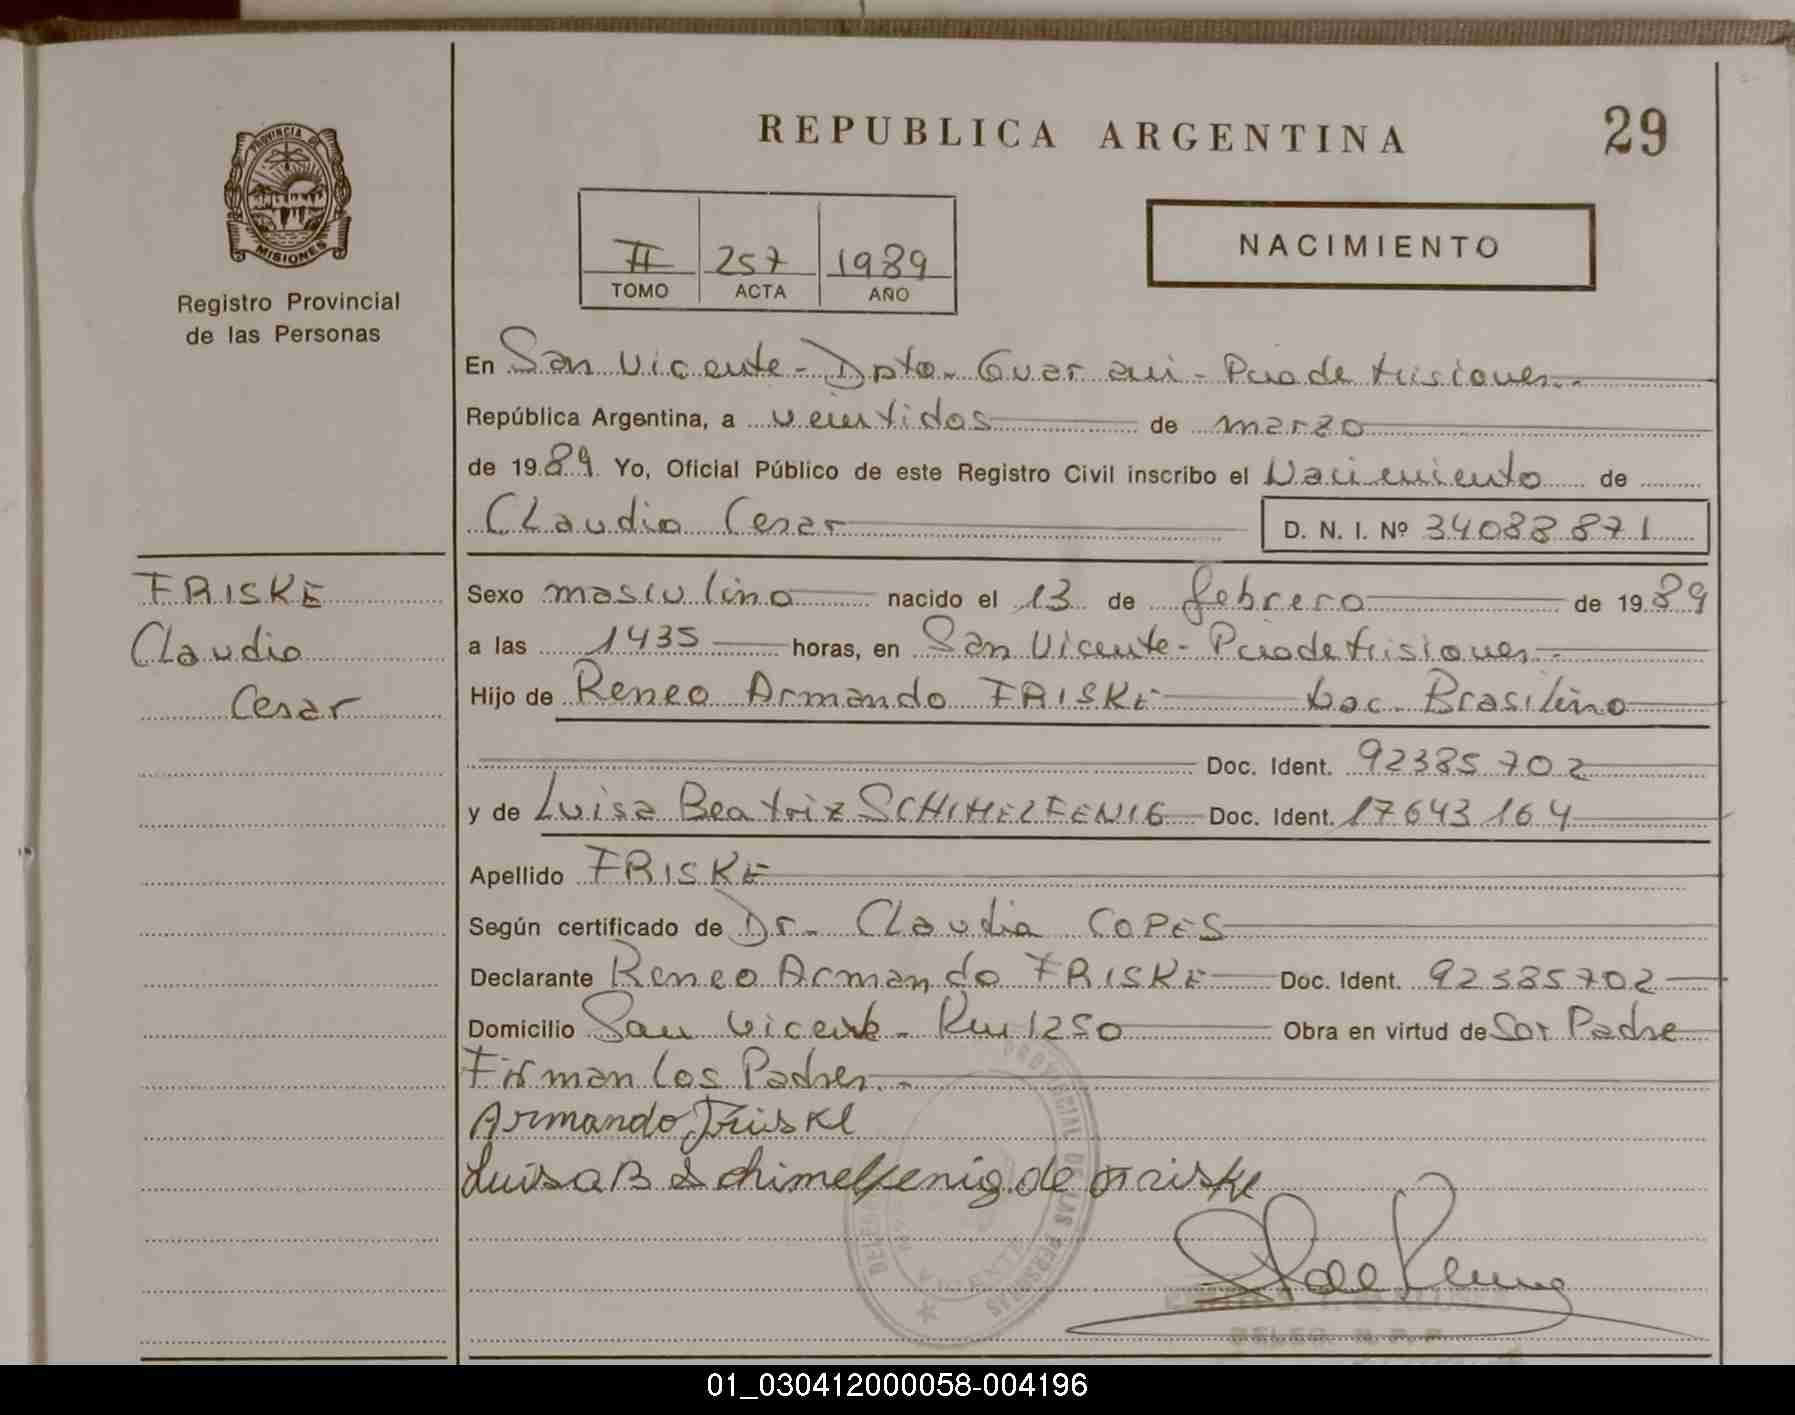 REPUBLICA ARGENTINA
29
PROVINCIA DE
MISIONES
Registro Provincial
de las Personas
II 257 1989
TOMO ACTA AÑO
NACIMIENTO
En San Vicente - Dpto. Guarani - Pcia de Misiones.-
República Argentina, a veintidos de marzo
de 1989. Yo, Oficial Público de este Registro Civil inscribo el Nacimiento de
Claudio Cesar D. N. I. Nº 34088871
FRISKE
Claudio
Cesar
Sexo masculino nacido el 13 de febrero de 1989
a las 1435 horas, en San Vicente - Pcia de Misiones.-
Hijo de Reneo Armando FRISKE Doc. Brasilino
Doc. Ident. 92385702
y de Luisa Beatriz SCHIMELFENIG Doc. Ident. 17643164
Apellido FRISKE
Según certificado de Dr. Claudia COPES
Declarante Reneo Armando FRISKE Doc. Ident. 92385702
Domicilio San Vicente - Km 1250 Obra en virtud de Ser Padre
Firman los Padres.-
Armando Friske
Luisa B Schimelfenig de Friske
PROVINCIAL DE LAS PERSONAS
01_030412000058-004196